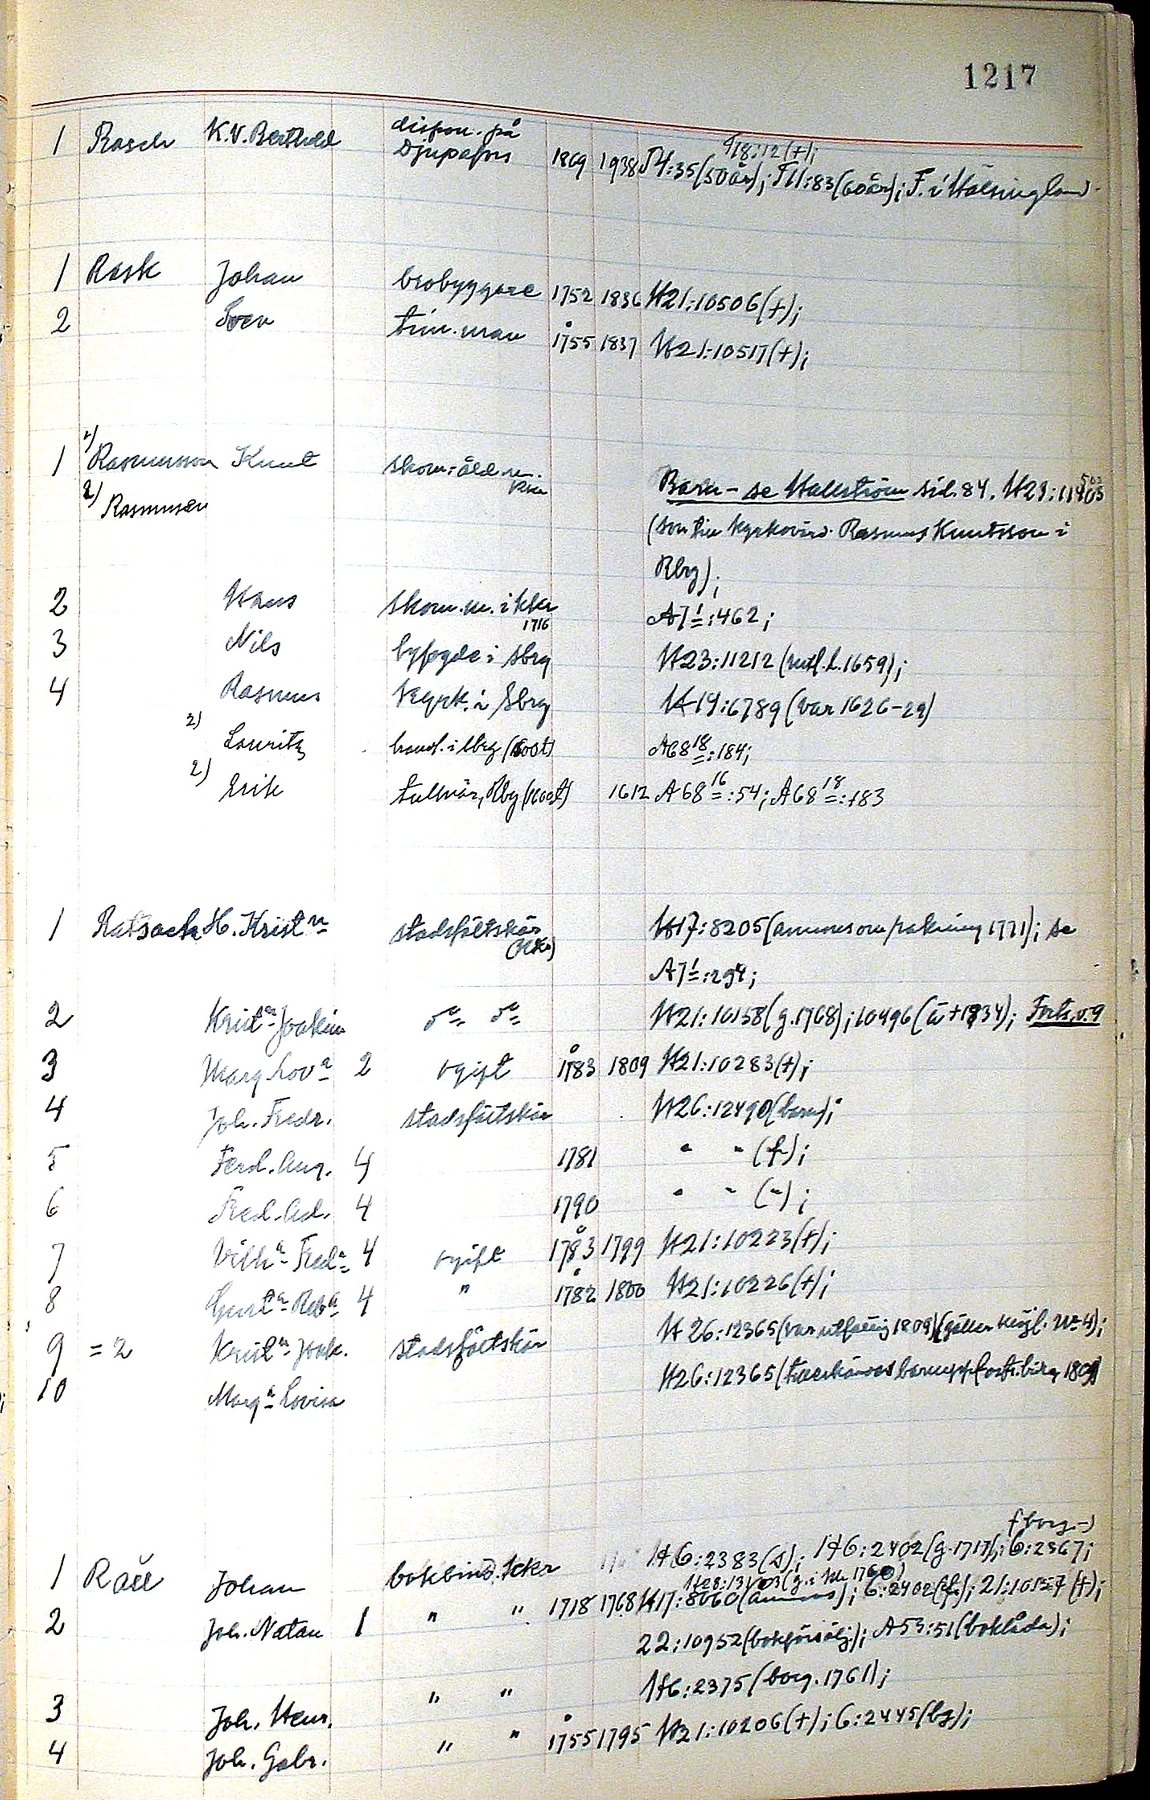 1217
1 Rasch K.V. Berthold dispon. på Djupafors 1869 1938 T4:35(50år); T11:83(60år); F. i Hälsingland
T18:12(+);
1 Rask Johan brobyggare 1752 1836 H21:10506(+);
2 Sven tim.man å 1755 1837 H21:10517(+);
1 2) Rasmusson Knut skom:åld.m.
2) Rasmusen
Barn - se Hallström sid. 84. H23:11403
(son till kyrkovärd. Rasmus Knutsson i
Rbg);
2 Hans skom.m. i kkr 1716 A7 1:462;
3 Nils byfogde i Sbrg H23:11212 (1659);
4 Rasmus kyrk. i Sbrg H19:6789 (var 1626-29)
2) Lauritz handl. i (koot) A68 18:184;
2) Erik Rbg (koot) 1612 A68 16:54; A68 18:183
1 Ratsack H. Krist n stadsfältskär (Kkr) H17:8205 (annons om 1771); se
A7 1:294;
2 Krist n Joakim d:o d:o H21:10158 (g. 1768); 10496 (ä +1834); Forts. v. 9
3 Marg Lov a 2 ogift å 1783 1809 H21:10283(+);
4 Joh. Fredr. stadsfältskär H26:12490 (barn);
5 Ferd. Aug. 4 1781 " " (f);
6 Fred. Ad. 4 1790 " " (");
7 Vilh a Fred a 4 ogift å 1783 1799 H21:10223(+);
8 Gust a Reb a 4 " å 1782 1800 H21:10226(+);
9 = 2 Krist n Joak. stadsfältskär H26:12365 (var utfattig 1809) (gäller möjl. No 4);
10 Marg a Lovisa H26:12365
1 Rau Johan bokbind. kkr H6:2383(s); H6:2402 (g. 1717); 6:2367;
(borg.-)
H28:13403 (g. i 1760)
2 Joh. Natan 1 " " 1718 1768 H17:8060 (annons); 6:2402 (f); 21:10157 (+);
22:10952 (bokförsälj); A53:51 (boklåda);
3 Joh. Henr. " " H6:2375 (borg. 1761);
4 Joh. Gabr. " " å 1755 1795 H21:10206(+); 6:2445 (bg);